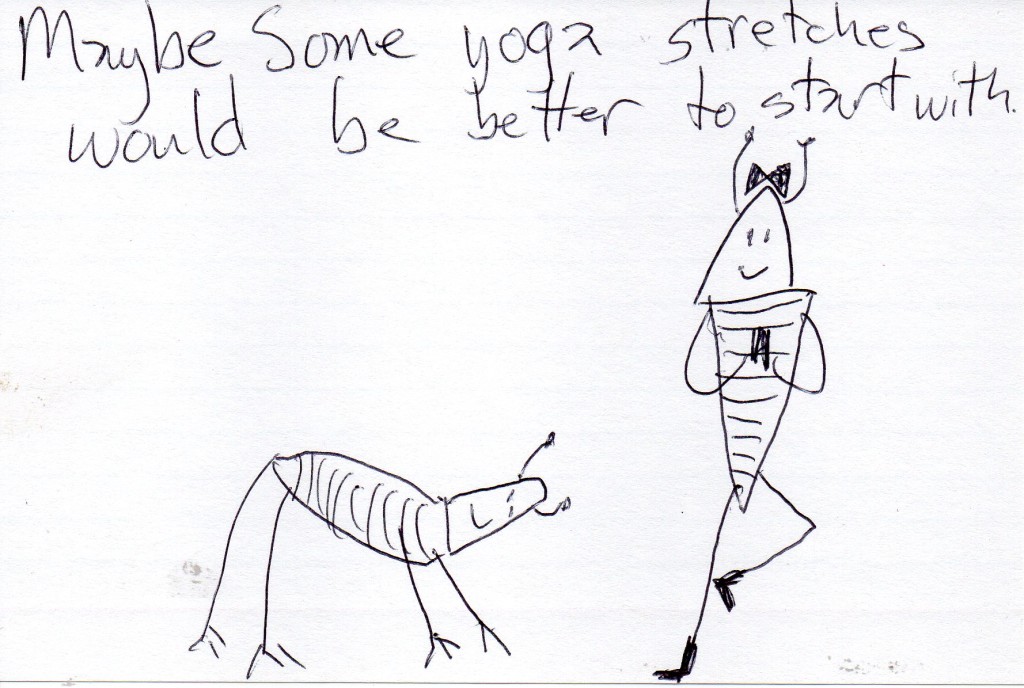 Maybe Some yoga stretches
would be better to start with.